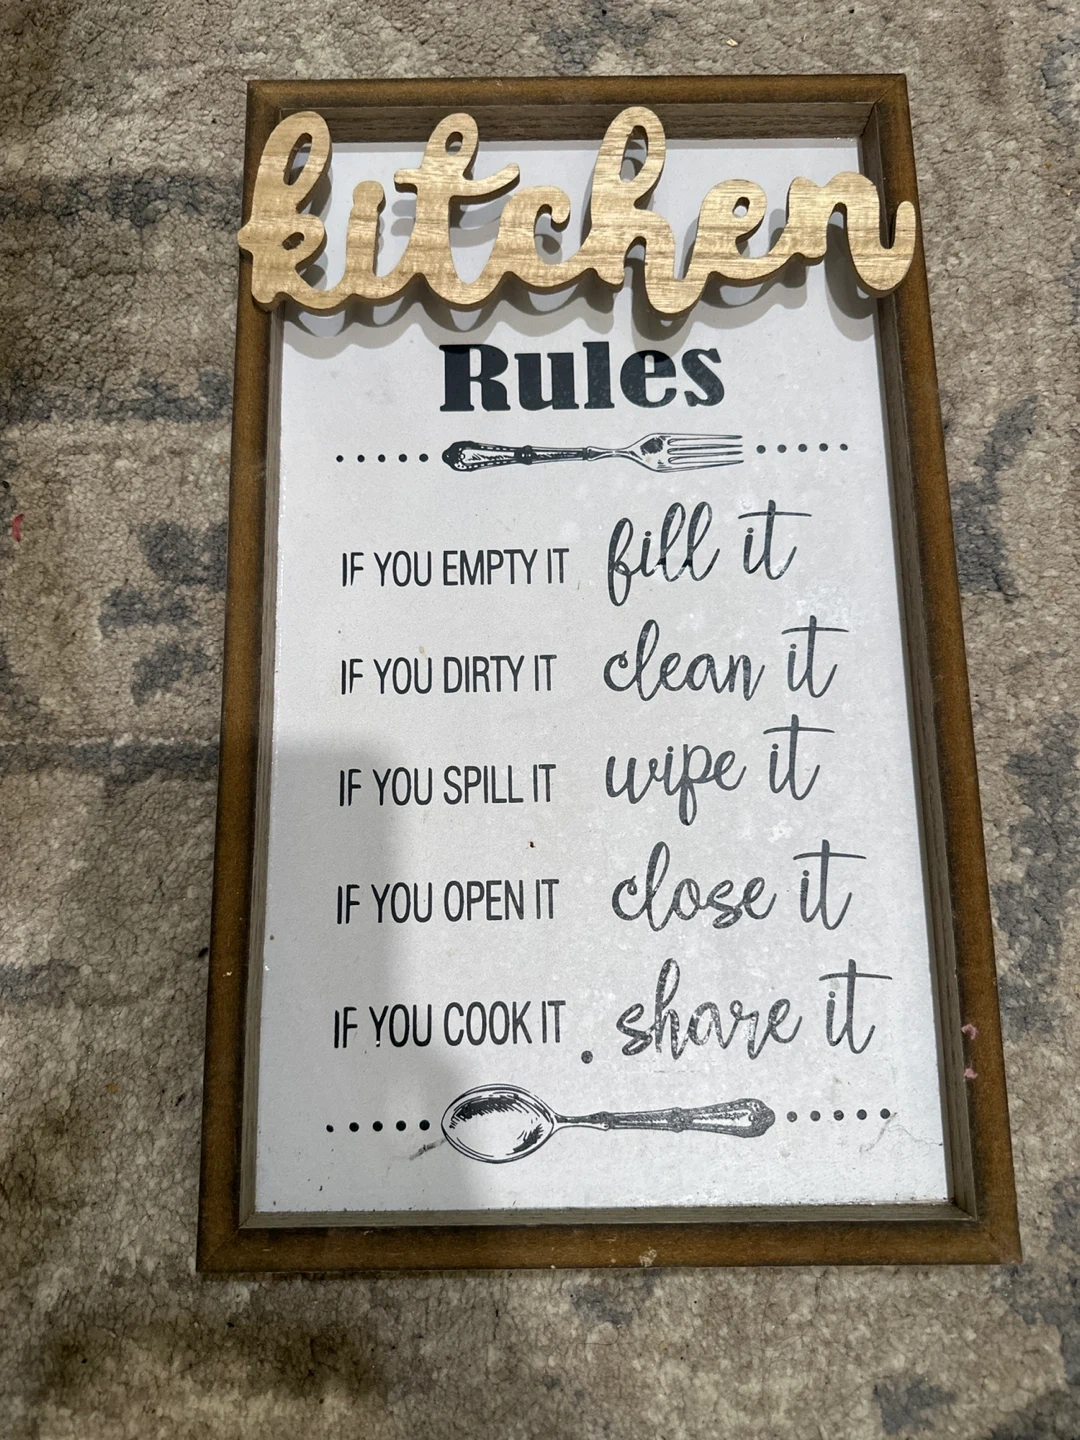 kitchen
Rules
IF YOU EMPTY IT fill it
IF YOU DIRTY IT clean it
IF YOU SPILL IT wipe it
IF YOU OPEN IT close it
IF YOU COOK IT share it